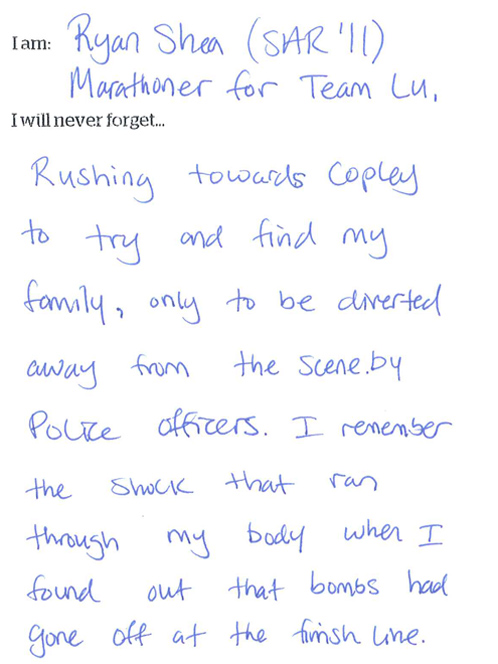 I am: Ryan Shea (SAR '11)
Marathoner for Team Lu,
I will never forget...
Rushing towards Copley
to try and find my
family, only to be diverted
away from the scene.by
Police officers. I remember
the shock that ran
through my body when I
found out that bombs had
gone off at the finish line.